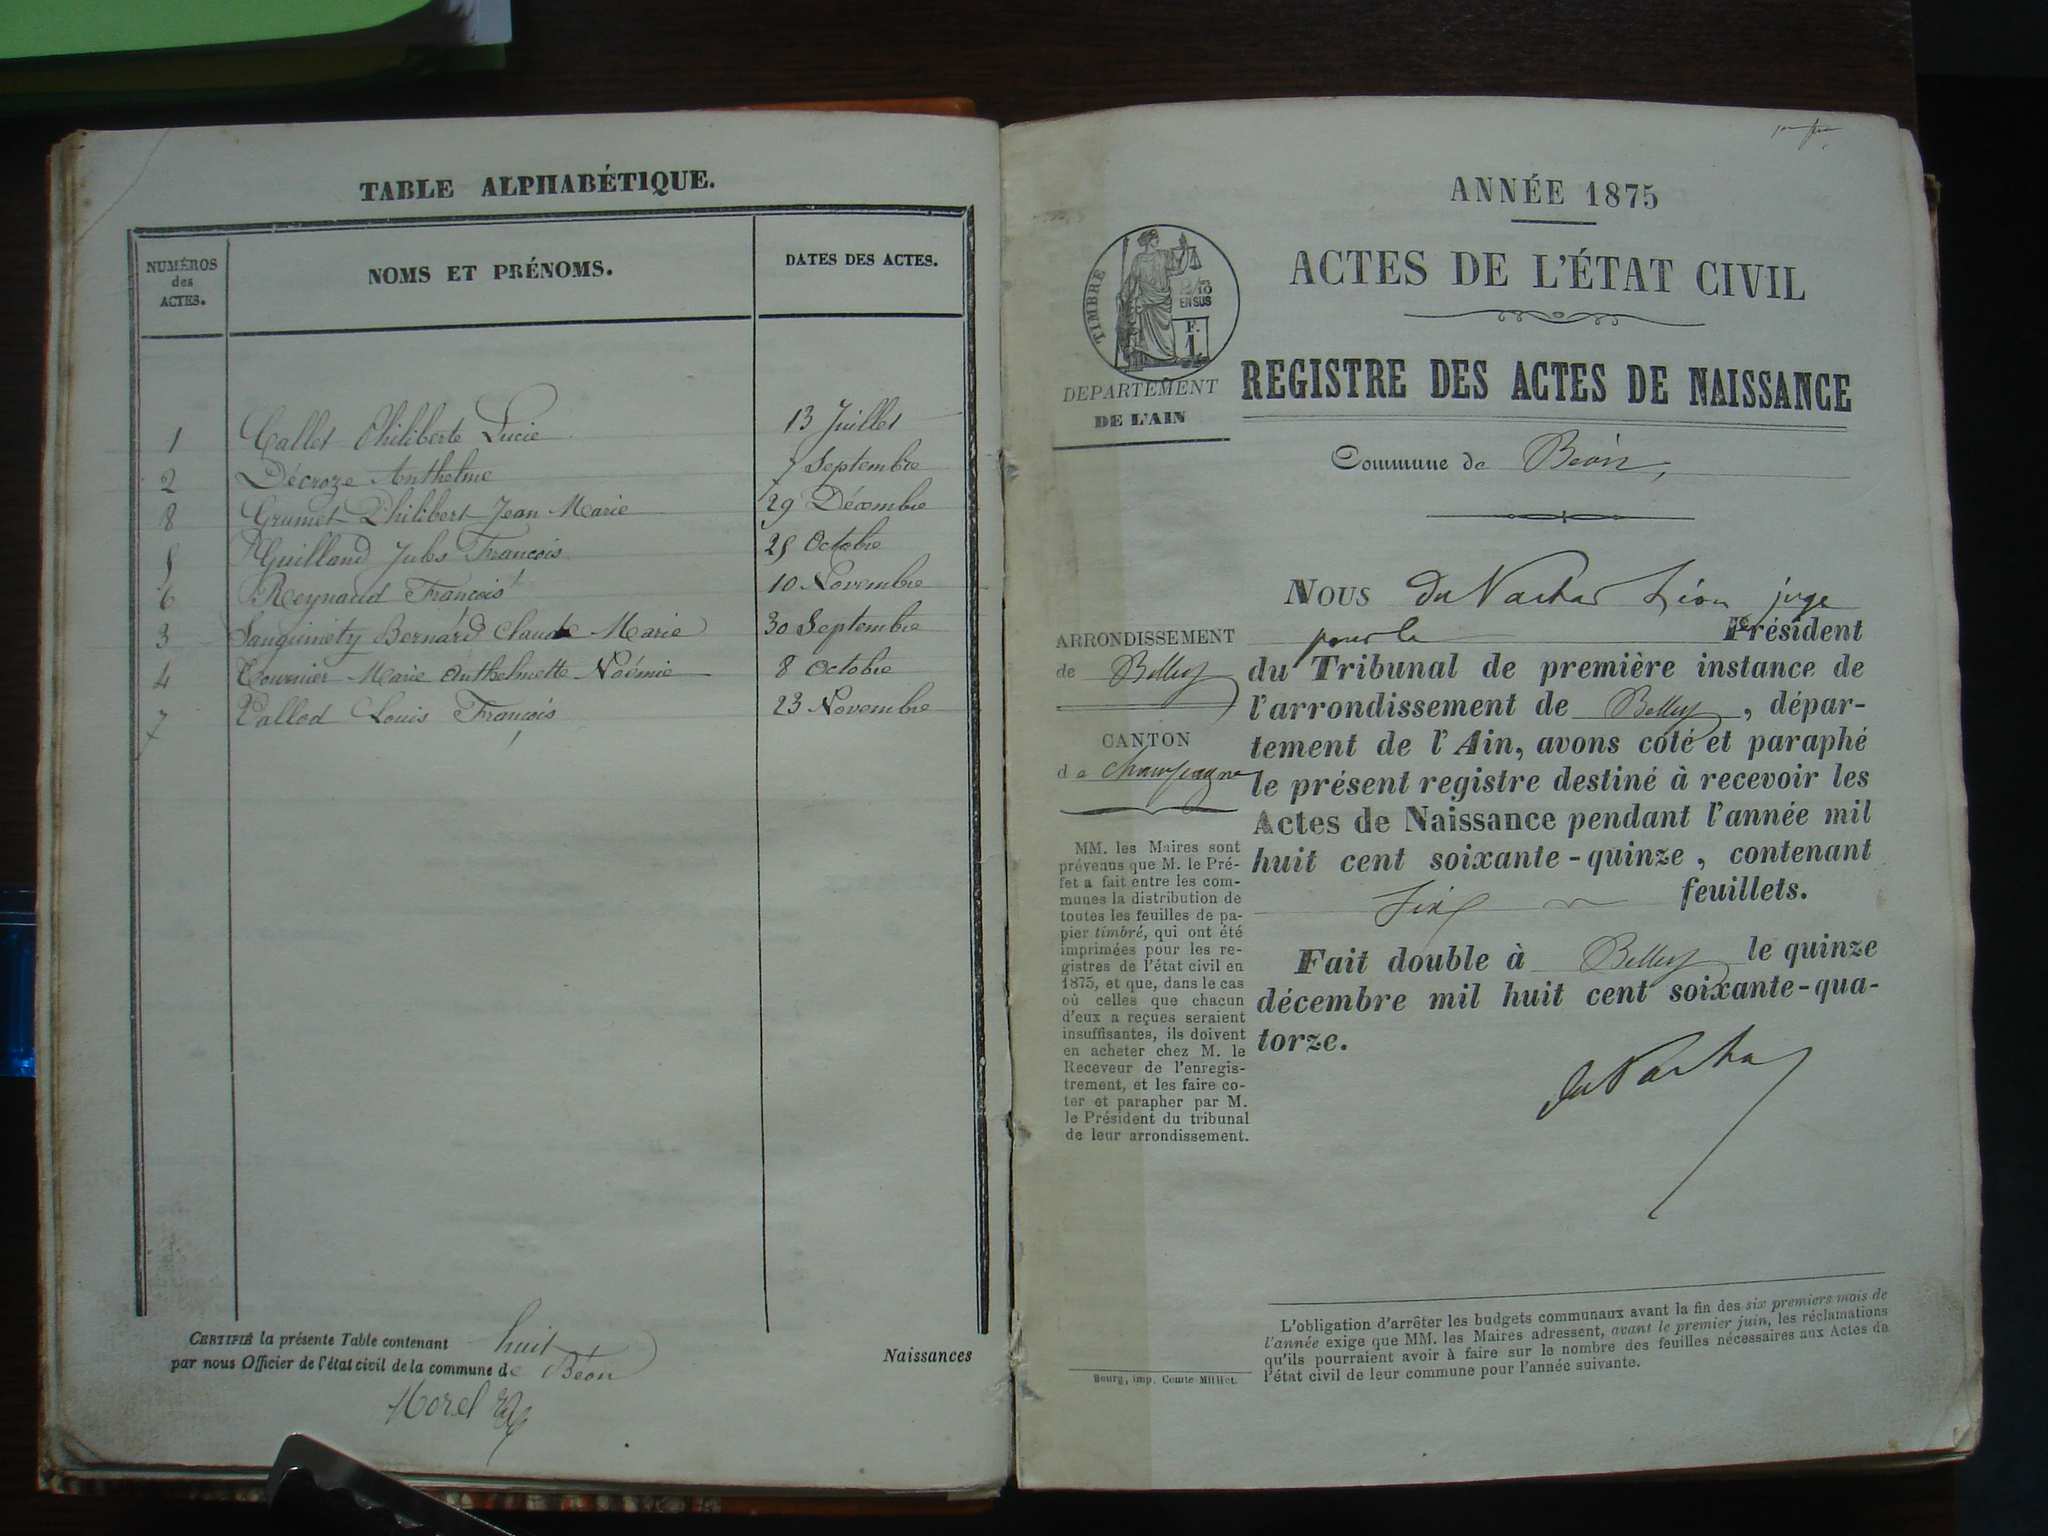 TABLE ALPHABÉTIQUE.
NUMÉROS
des
ACTES.
NOMS ET PRÉNOMS.
DATES DES ACTES.
1 Callet Philiberte Lucie 13 Juillet
2 Décroze Anthelme 7 Septembre
8 Grumet Philibert Jean Marie 29 Décembre
5 Guilland Jules François 25 Octobre
6 Reynaud François 10 Novembre
3 Sanguinety Bernard Claude Marie 30 Septembre
4 Tournier Marie Anthelmette Noémie 8 Octobre
7 Vallod Louis François 23 Novembre
CERTIFIÉ la présente Table contenant huit
par nous Officier de l'état civil de la commune de Béon
Morel
Naissances
ANNÉE 1875
ACTES DE L'ÉTAT CIVIL
TIMBRE
2/10
EN SUS
F.
1
DEPARTEMENT
DE L'AIN
REGISTRE DES ACTES DE NAISSANCE
Commune de Béon,
ARRONDISSEMENT
de Belley
CANTON
de Champagne
MM. les Maires sont
prévenus que M. le Pré-
fet a fait entre les com-
munes la distribution de
toutes les feuilles de pa-
pier timbré, qui ont été
imprimées pour les re-
gistres de l'état civil en
1875, et que, dans le cas
où celles que chacun
d'eux a reçues seraient
insuffisantes, ils doivent
en acheter chez M. le
Receveur de l'enregis-
trement, et les faire co-
ter et parapher par M.
le Président du tribunal
de leur arrondissement.
Bourg, imp. Comte-Milliet.
NOUS Léon juge
pour le Président
du Tribunal de première instance de
l'arrondissement de Belley, dépar-
tement de l'Ain, avons coté et paraphé
le présent registre destiné à recevoir les
Actes de Naissance pendant l'année mil
huit cent soixante-quinze, contenant
Six feuillets.
Fait double à Belley le quinze
décembre mil huit cent soixante-qua-
torze.
L'obligation d'arrêter les budgets communaux avant la fin des six premiers mois de
l'année exige que MM. les Maires adressent, avant le premier juin, les réclamations
qu'ils pourraient avoir à faire sur le nombre des feuilles nécessaires aux Actes de
l'état civil de leur commune pour l'année suivante.